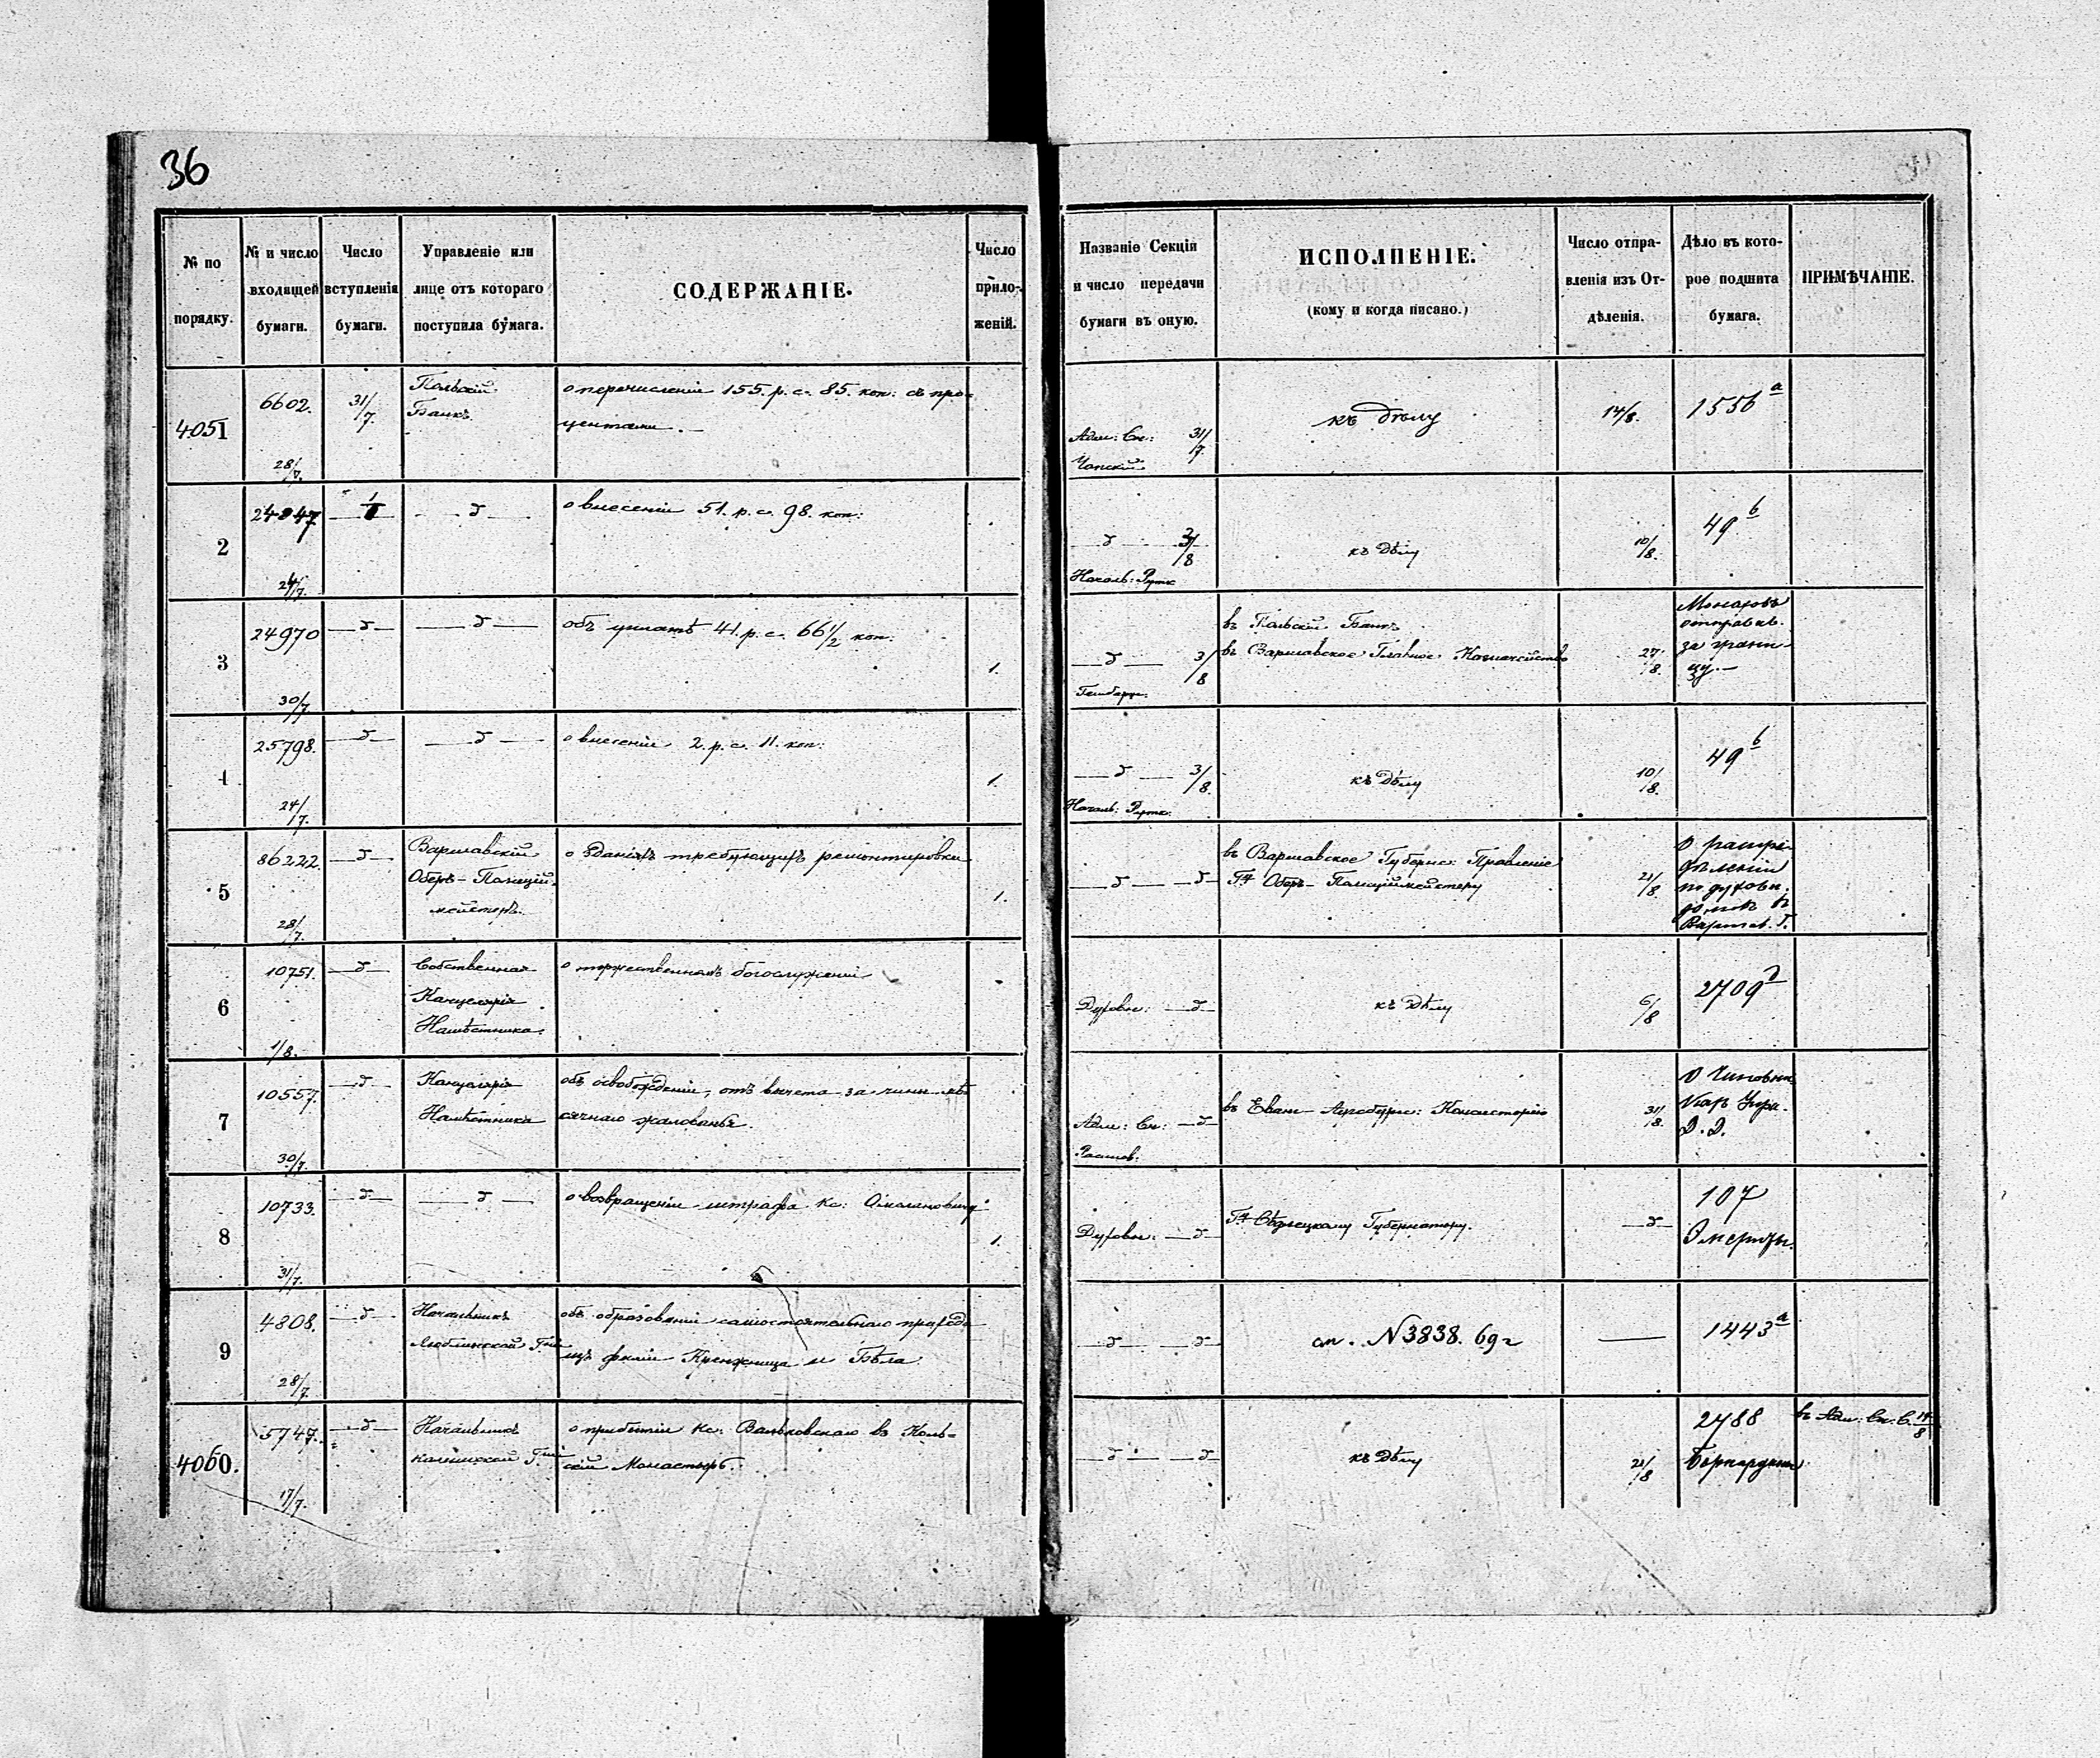 36
№ по порядку.
№ и число входящей бумаги.
Число вступленія бумаги.
Управленіе или лице отъ котораго поступила бумага.
СОДЕРЖАНІЕ.
Число приложеній.
Названіе Секціи и число передачи бумаги въ оную.
ИСПОЛНЕНІЕ.
(кому и когда писано.)
Число отправленія изъ Отдѣленія.
Дѣло въ которое подшита бумага.
ПРИМѢЧАНІЕ.
4051
6602.
28/7.
31/7.
Польскій
Банкъ
о перечисленіи 155. р. с. 85. коп: съ про-
центами.
Адм: Сек: 31/7.
къ дѣлу
14/8.
1556 a
2
24847
24/7.
1
— д —
о внесеніи 51. р. с. 98. коп:
— д — 3/8
Началь: Рутк
къ Дѣлу
10/8.
49 b
3
24970
30/7.
— д —
— д —
объ уплатѣ 41. р. с. 66 1/2 коп:
1.
— д — 3/8
въ Польскій Банкъ
въ Варшавское Главное Казначейство
27/8.
Монаховъ
отправкѣ
за грани-
цу. —
4
25798.
24/7.
— д —
— д —
о внесеніи 2. р. с. 11. коп:
1.
— д — 3/8.
Началь: Рутк:
къ Дѣлу
10/8.
49 b
5
86222.
28/7.
— д —
Варшавскій
Оберъ-Полицій-
мейстеръ.
о зданіяхъ требующихъ ремонтировки
1.
— д — — д —
въ Варшавское Губернс: Правленіе
Гну Оберъ-Полицiймейстеру
21/8.
О распре-
дѣленіи
по духовн.
домовъ въ
Варшав. Г.
6
10751.
1/8.
— д —
Собственная
Канцелярія
Намѣстника.
о торжественномъ богослуженіи
Духовн: — д —
къ Дѣлу
6/8
2709 d
7
10557.
30/7.
— д —
Канцелярія
Намѣстника
объ освобожденіи, отъ вычета за чины мѣ-
сячнаго жалованья.
Адм: Сек: — д —
въ Еван-Аугсбургс: Консисторію
31/8.
О Чиновни
Д. Д.
8
10733.
31/7.
— д —
— д —
о возвращеніи штрафа Кс:
1.
Духовн: — д —
Гну Сѣдлецкому Губернатору.
— д —
107
Эмериты.
9
4808.
28/7.
— д —
Начальникъ
Люблинской Гніи
объ образованіи самостоятельнаго прихода
изъ филіи Кренжница и Бѣла.
— д — — д —
см. N 3838. 69 г
—
1443 a
4060.
5747.
17/7.
— д —
Начальникъ
Калишской Гніи
о прибытіи Кс: Вальковскаго въ Коль-
скій Монастырь.
— д — — д —
къ Дѣлу
21/8
2788
Бернардины
въ Адм: Сек. С. 14/8